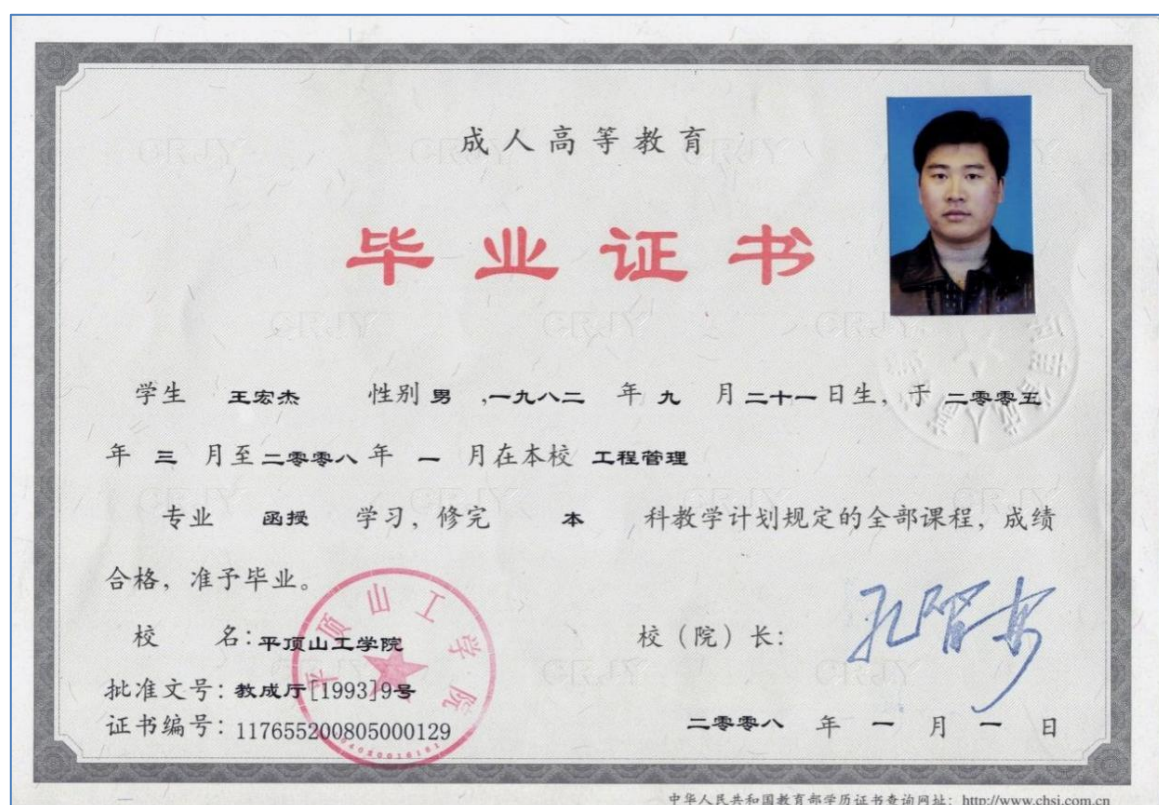 成人高等教育
毕业证书
学生 王宏杰 性别 男 ,一九八二 年 九 月 二十一 日生, 于 二零零五
年 三 月至 二零零八 年 一 月在本校 工程管理
专业 函授 学习, 修完 本 科教学计划规定的全部课程, 成绩
合格, 准予毕业。
校 名: 平顶山工学院
校(院)长:
批准文号: 教成厅[1993]9号
证书编号: 117655200805000129
二零零八 年 一 月 一 日
平顶山工学院
中华人民共和国教育部学历证书查询网址: http://www.chsi.com.cn
CRJY